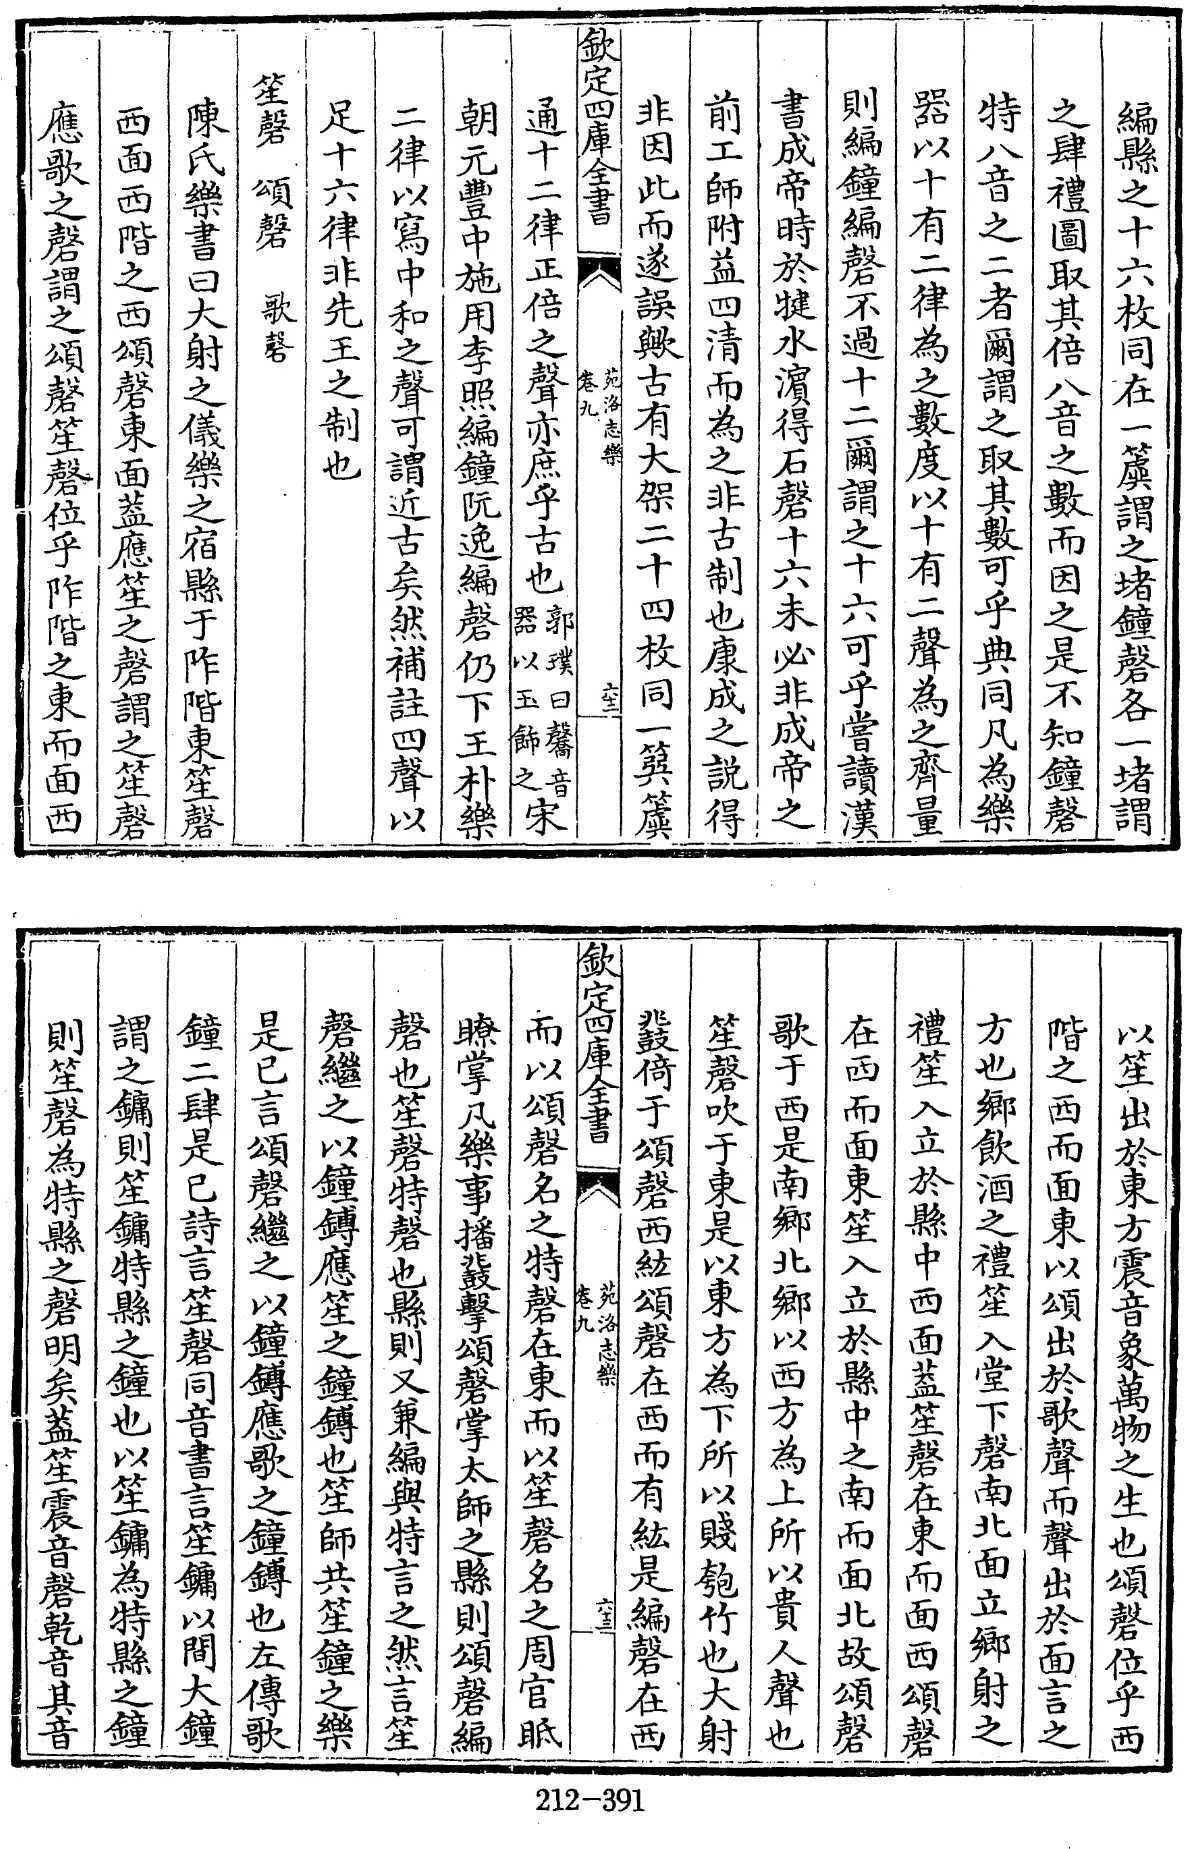 編縣之十六枚同在一簴謂之堵鐘磬各一堵謂
之肆禮圖取其倍八音之數而因之是不知鐘磬
特八音之二者爾謂之取其數可乎典同凡為樂
器以十有二律為之數度以十有二聲為之齊量
則編鐘編磬不過十二爾謂之十六可乎嘗讀漢
書成帝時於犍水濵得石磬十六未必非成帝之
前工師附益四清而為之非古制也康成之説得
非因此而遂誤歟古有大架二十四枚同一簨簴
欽定四庫全書
苑洛志樂
卷九
六十二
通十二律正倍之聲亦庶乎古也郭璞曰毊音
器以玉飾之宋
朝元豐中施用李照編鐘阮逸編磬仍下王朴樂
二律以寫中和之聲可謂近古矣然補註四聲以
足十六律非先王之制也
笙磬 頌磬 歌磬
陳氏樂書曰大射之儀樂之宿縣于阼階東笙磬
西面西階之西頌磬東面葢應笙之磬謂之笙磬
應歌之磬謂之頌磬笙磬位乎阼階之東而面西
以笙出於東方震音象萬物之生也頌磬位乎西
階之西而面東以頌出於歌聲而聲出於面言之
方也鄉飲酒之禮笙入堂下磬南北面立鄉射之
禮笙入立於縣中西面葢笙磬在東而面西頌磬
在西而面東笙入立於縣中之南而面北故頌磬
歌于西是南鄉北鄉以西方為上所以貴人聲也
笙磬吹于東是以東方為下所以賤匏竹也大射
鼗倚于頌磬西紘頌磬在西而有紘是編磬在西
欽定四庫全書
苑洛志樂
卷九
六十三
而以頌磬名之特磬在東而以笙磬名之周官眡
瞭掌凡樂事播鼗擊頌磬掌太師之縣則頌磬編
磬也笙磬特磬也縣則又兼編與特言之然言笙
磬繼之以鐘鎛應笙之鐘鎛也笙師共笙鐘之樂
是已言頌磬繼之以鐘鎛應歌之鐘鎛也左傳歌
鐘二肆是已詩言笙磬同音書言笙鏞以間大鐘
謂之鏞則笙鏞特縣之鐘也以笙鏞為特縣之鐘
則笙磬為特縣之磬明矣葢笙震音磬乾音其音
212-391